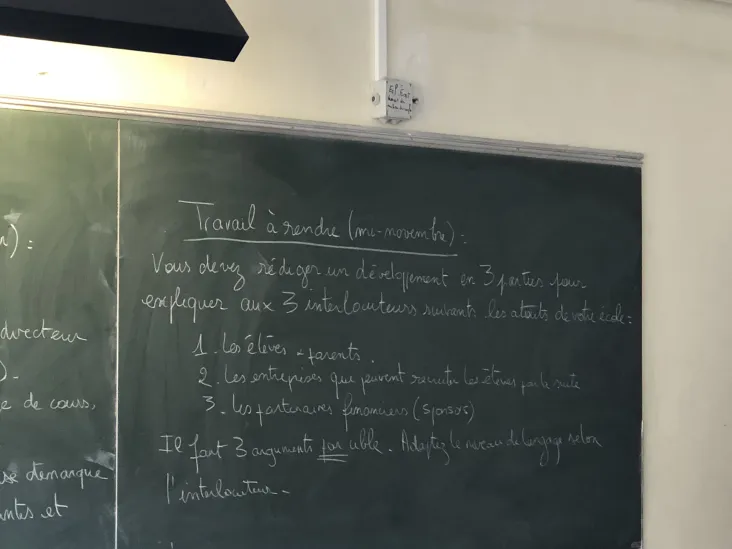 Travail à rendre (mi-novembre) :
Vous devez rédiger un développement en 3 parties pour
expliquer aux 3 interlocuteurs suivants les atouts de votre école :
1. Les élèves + parents.
2. Les entreprises que peuvent recruter les élèves par la suite
3. Les partenaires financiers (sponsors)
Il faut 3 arguments par cible. Adaptez le niveau de langage selon
l'interlocuteur.
) :
directeur
) -
de cours,
se démarque
et